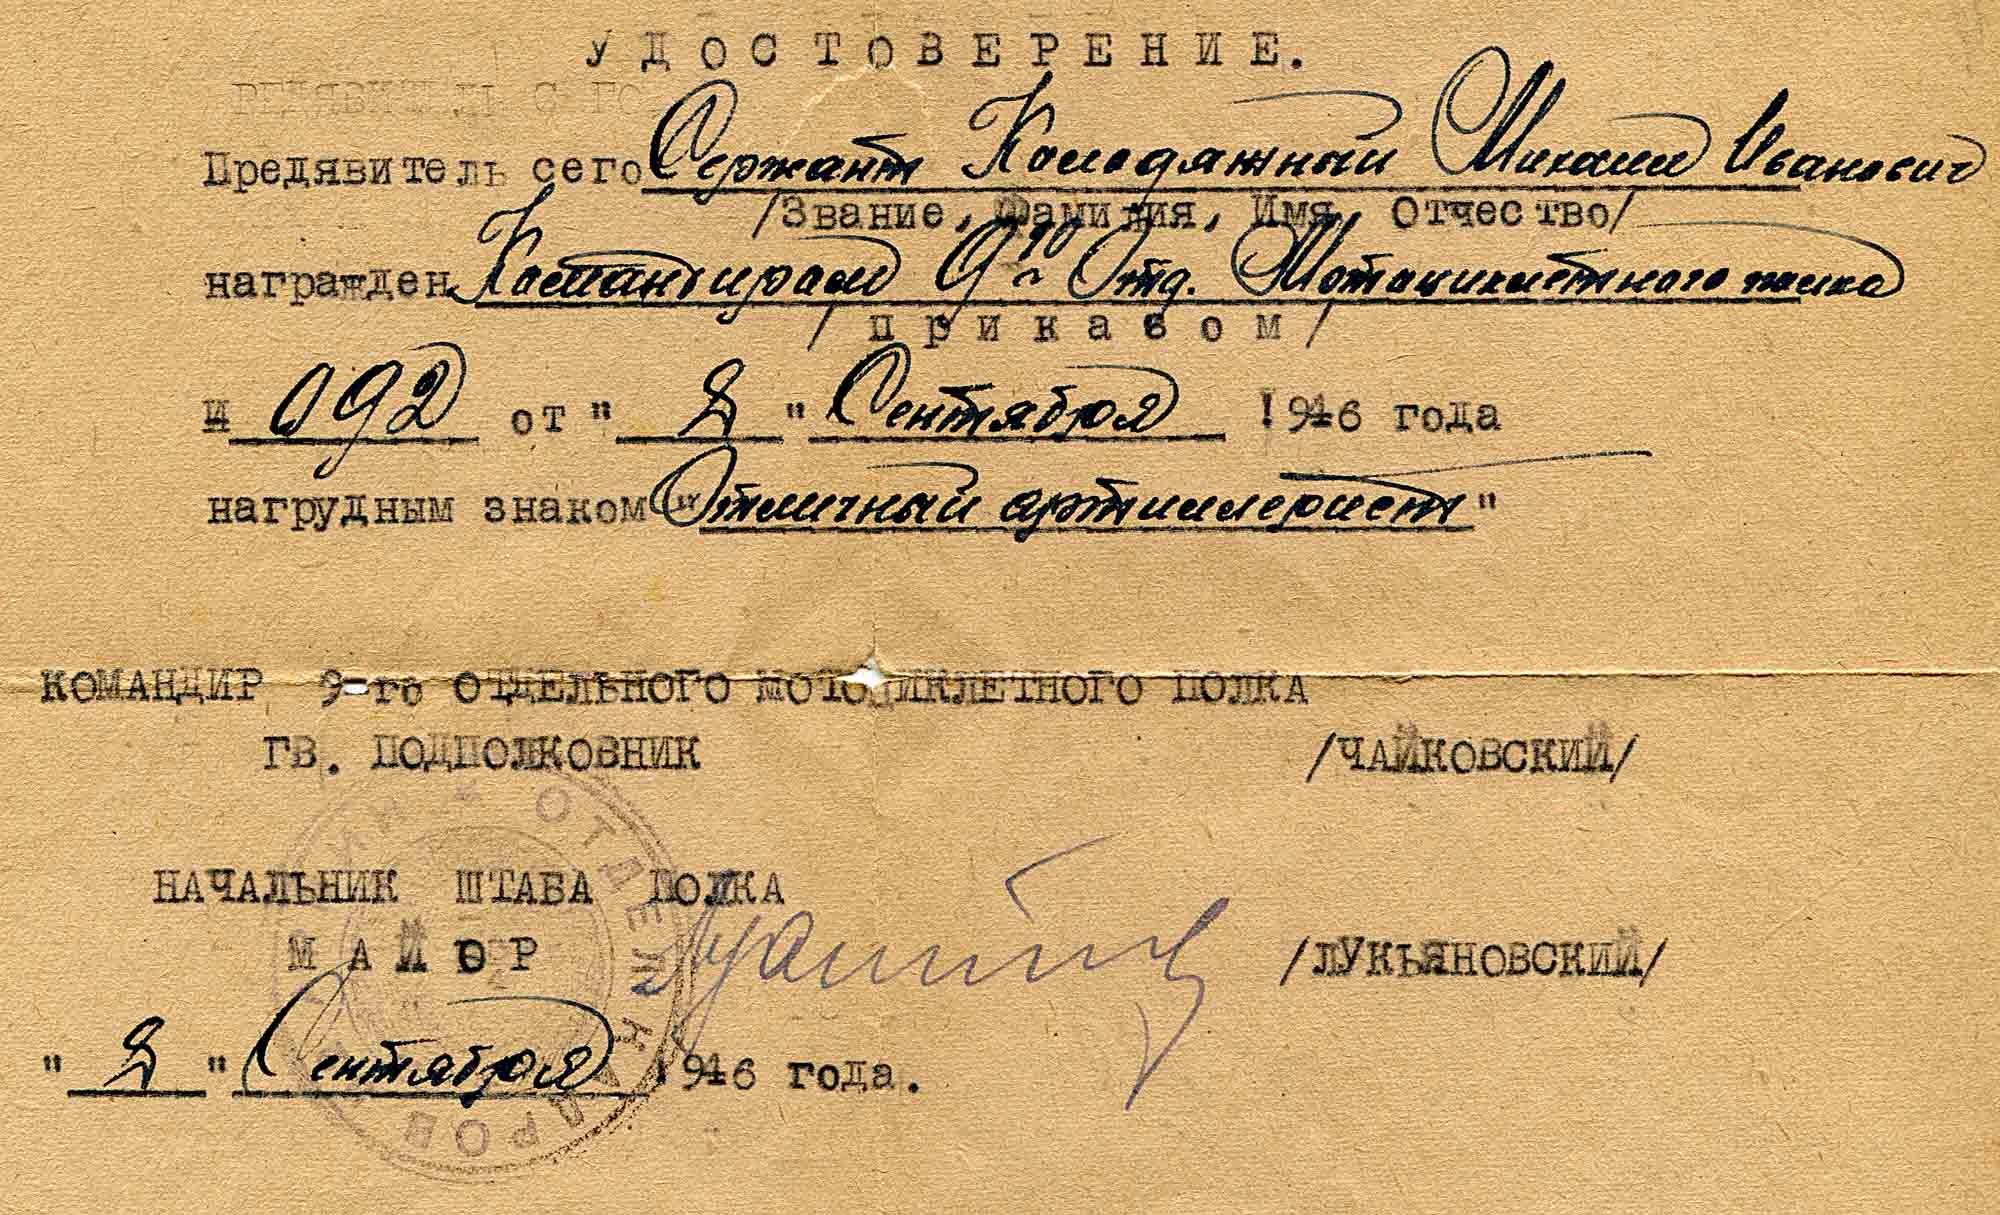 УДОСТОВЕРЕНИЕ.
Предявитель сего Сержант Колодяжный Михаил Иванович
/Звание, Фамилия, Имя, Отчество/
награжден Командиром 9го Отд. Мотоциклетного полка
/приказом/
И 092 от " 2 " Сентября 1946 года
нагрудным знаком "Отличный артиллерист"
КОМАНДИР 9-го ОТДЕЛЬНОГО МОТОЦИКЛЕТНОГО ПОЛКА
ГВ. ПОДПОЛКОВНИК /ЧАЙКОВСКИЙ/
НАЧАЛЬНИК ШТАБА ПОЛКА
МАЙОР /ЛУКЬЯНОВСКИЙ/
" 2 " Сентября 1946 года.